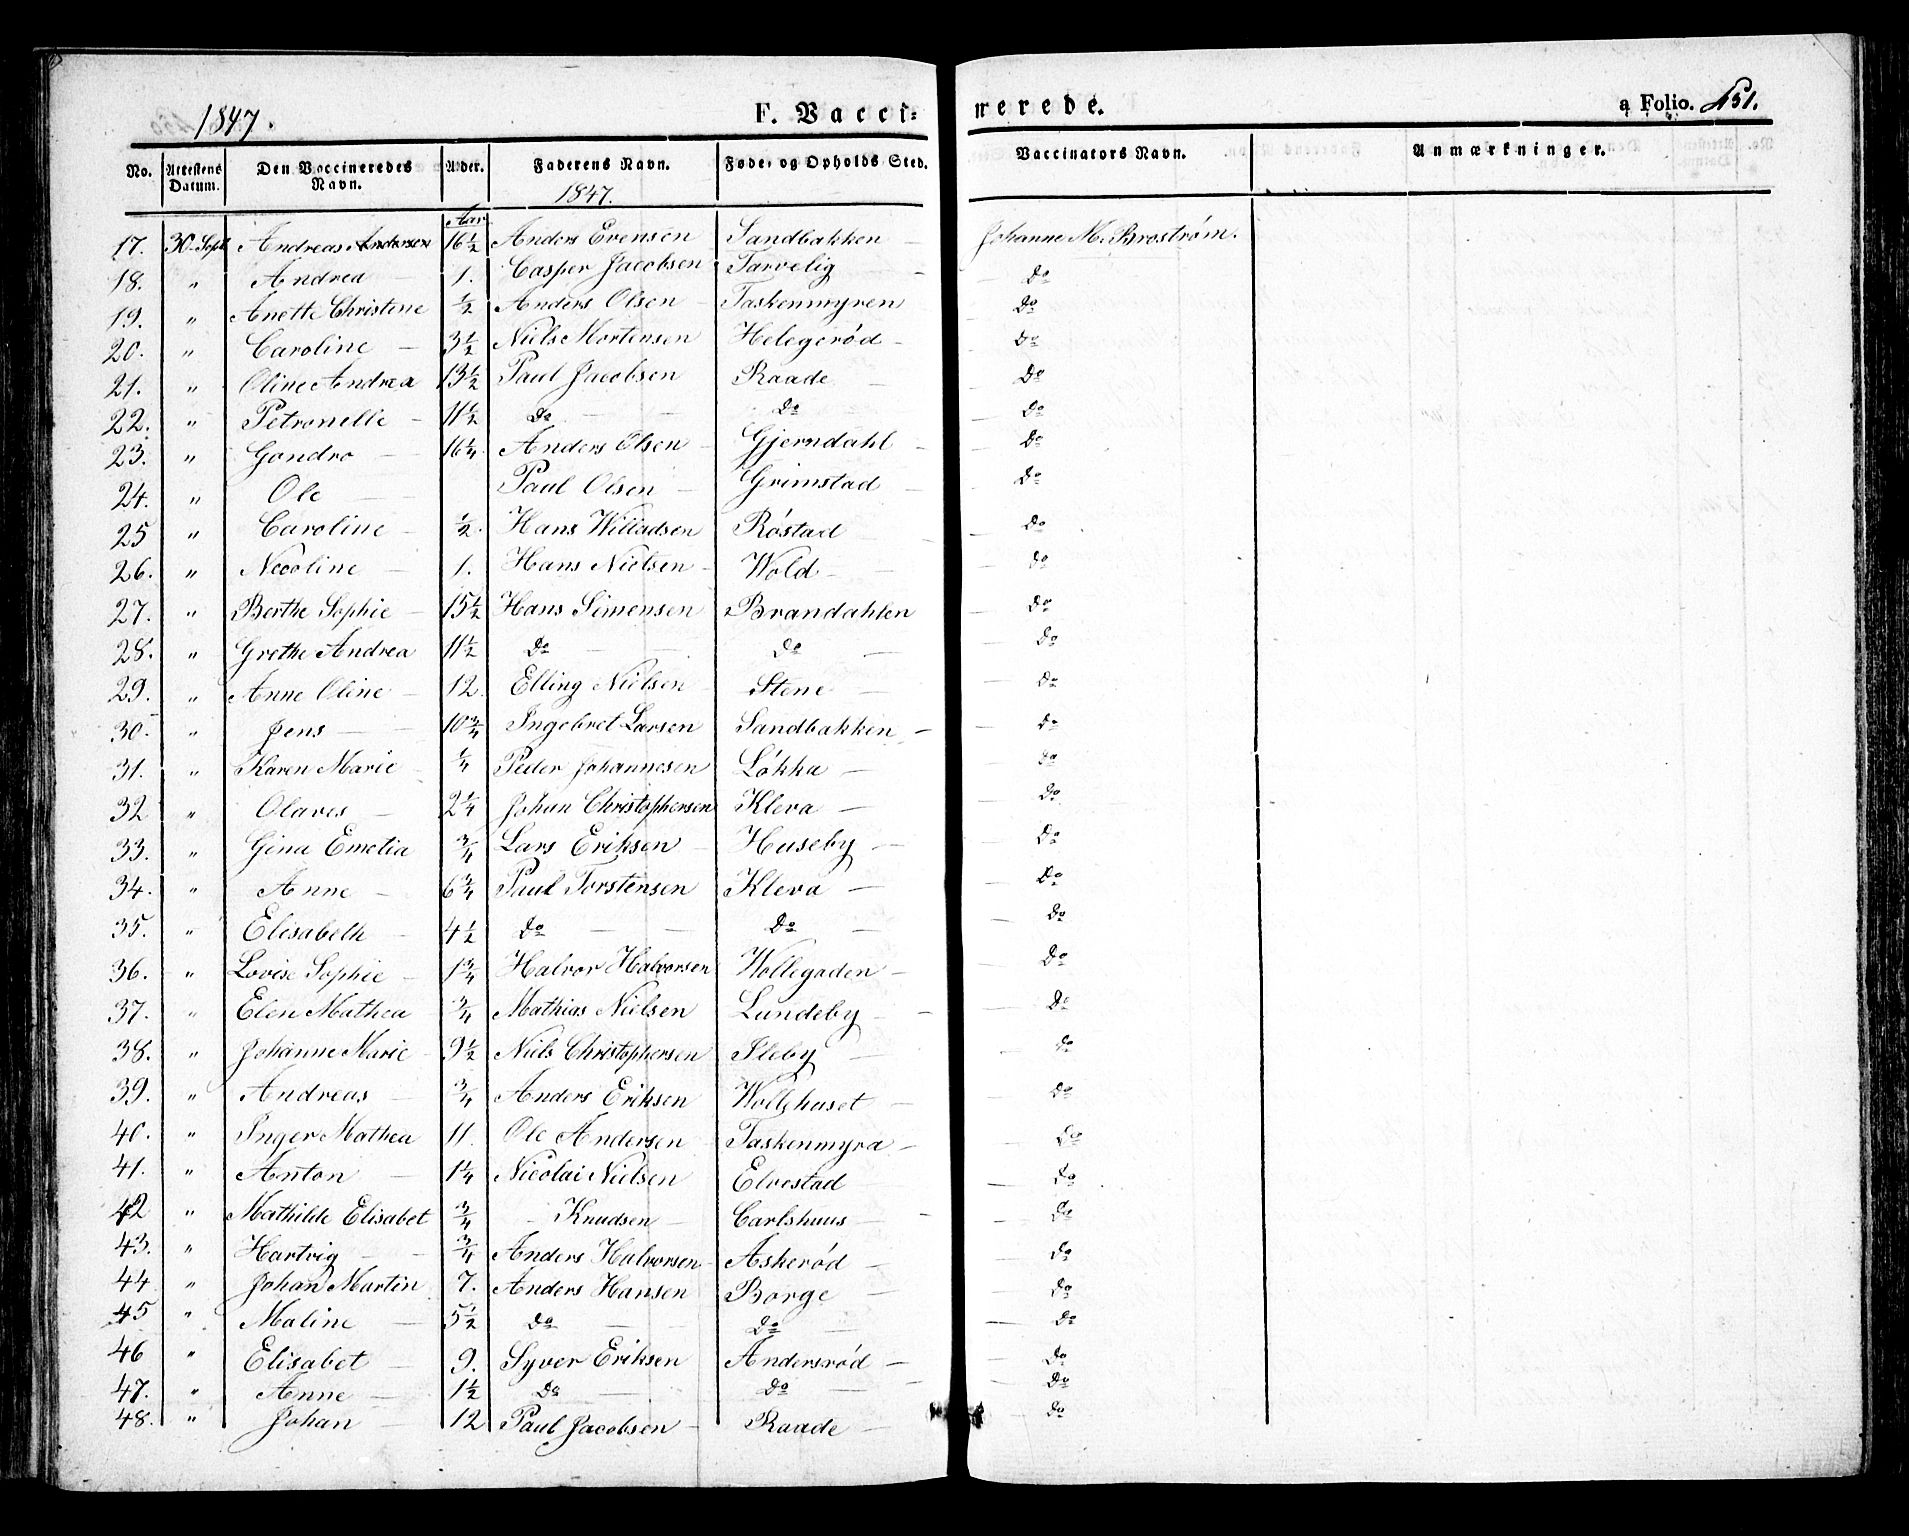 1847. F. Vacci=nerede. a Folio. 451.
No. Attestens Datum. Den Vaccineredes Navn. Alder. Faderens Navn. Føde- og Opholds Sted. Vaccinators Navn. Anmærkninger.
1847.
Aar
17. 30. Sept Andreas Andersen 16 1/2 Anders Evensen Sandbakken Johanne M. Broström.
18. " Andrea 1. Casper Jacobsen Tarvelig Do
19. " Anette Christine 1/2 Anders Olsen Taskenmyren Do
20. " Caroline 3 1/2 Niels Mortensen Helegerød Do
21. " Oline Andrea 13 1/2 Paul Jacobsen Raade Do
22. " Petronelle 11 1/2 Do Do Do
23. " Gondro 16 1/4 Anders Olsen Gjerndahl Do
24. " Ole Paul Olsen Grimstad Do
25 " Caroline 1/2. Hans Willadsen Røstad Do
26. " Nicoline 1. Hans Nielsen Wold Do
27. " Berthe Sophie 15 1/2 Hans Simensen Brandahlen Do
28. " Grethe Andrea 11 1/2 Do Do Do
29. " Anne Oline 12. Elling Nielsen Stene Do
30. " Jens 10 3/4 Ingebret Larsen Sandbakken Do
31. " Karen Marie 1/4 Peder Johannesen Løkka Do
32 " Olaves 2 1/4 Johan Christophersen Kleva Do
33. " Gina Emelia 3/4 Lars Eriksen Huseby Do
34. " Anne 6 3/4 Paul Torstensen Kleva Do
35. " Elisabeth 4 1/2 Do Do Do
36. " Lovise Sophie 1 3/4 Halvor Halvorsen Wollegaden Do
37. " Elen Mathea 3/4 Mathias Nielsen Lundeby Do
38. " Johanne Marie 9 1/2 Niels Christophersen Sleby Do
39. " Andreas 3/4 Anders Eriksen Do
40. " Inger Mathea 11. Ole Andersen Taskenmyra Do
41. " Anton 1 1/4 Nicolai Nielsen Elvestad Do
42 " Mathilde Elisabet 3/4 Knudsen Carlshuus Do
43. " Hartvig 3/4 Anders Halvorsen Askerød Do
44 " Johan Martin 7. Anders Hansen Borge Do
45 " Maline 5 1/2 Do Do Do
46 " Elisabet 9. Syver Eriksen Andersrød Do
47. " Anne 1 1/2 Do Do Do
48. " Johan 12 Paul Jacobsen Raade Do